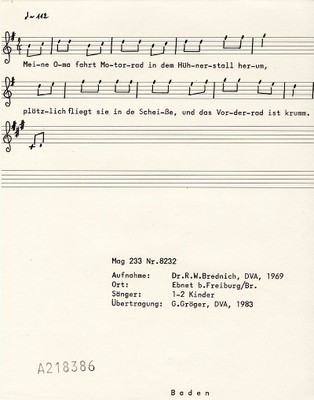 ♩= 112
Mei-ne O-ma fahrt Mo-tor-rad in dem Hüh-ner-stall her-um,
plötz-lich fliegt sie in de Schei-ße, und das Vor-der-rad ist krumm.
Mag 233 Nr.8232
Aufnahme: Dr.R.W.Brednich, DVA, 1969
Ort: Ebnet b.Freiburg/Br.
Sänger: 1-2 Kinder
Übertragung: G.Gröger, DVA, 1983
A218386
Baden